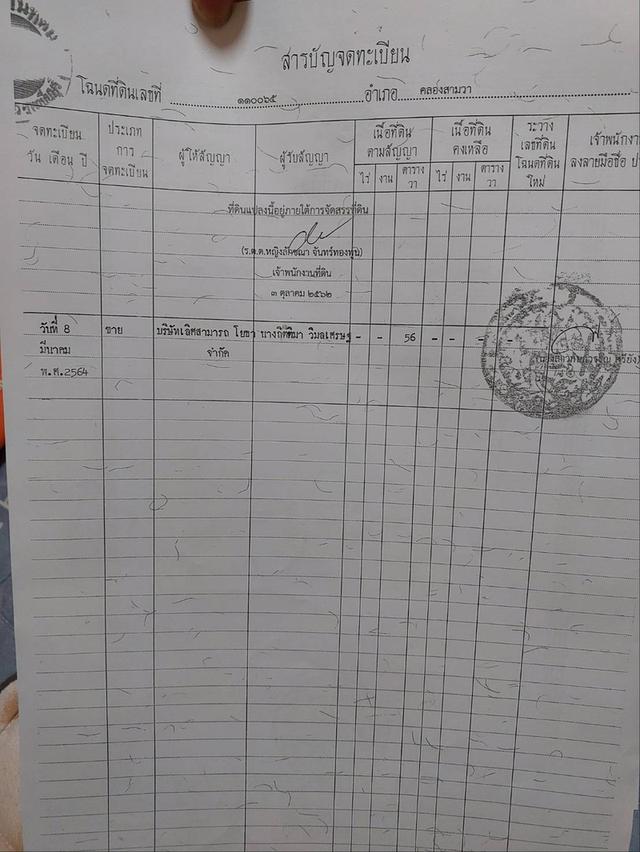 สารบัญจดทะเบียน
โฉนดที่ดินเลขที่ ๑๑๐๐๖๕ อำเภอ คลองสามวา
จดทะเบียน วัน เดือน ปี
ประเภท การ จดทะเบียน
ผู้ให้สัญญา
ผู้รับสัญญา
เนื้อที่ดิน ตามสัญญา
ไร่ งาน ตาราง วา
เนื้อที่ดิน คงเหลือ
ไร่ งาน ตาราง วา
ระวาง เลขที่ดิน โฉนดที่ดิน ใหม่
เจ้าพนักงา
ลงลายมือชื่อ ป
ที่ดินแปลงนี้อยู่ภายใต้การจัดสรรที่ดิน
(ร.ต.ต.หญิงลัชณา จันทร์ทองพูน)
เจ้าพนักงานที่ดิน
๓ ตุลาคม ๒๕๖๒
วันที่ 8 ขาย บริษัทเลิศสามารถ โยธา นาง วิมลเศรษฐ - - 56 - - - -
มีนาคม จำกัด
พ.ศ.2564